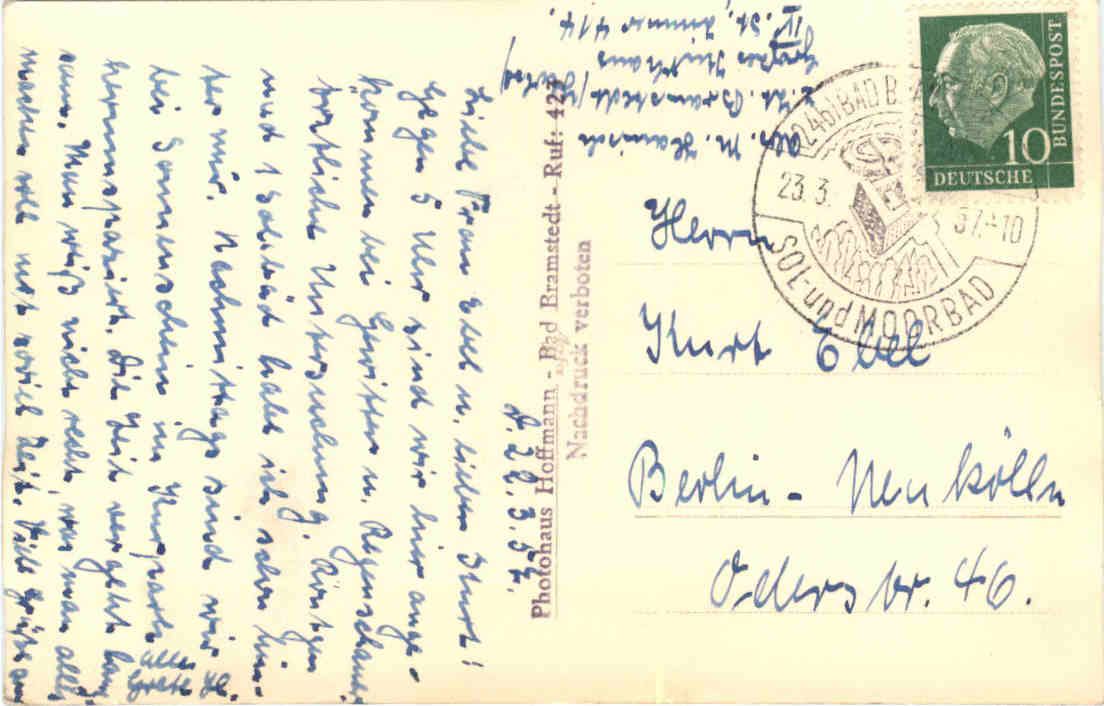 d. 22.3.57.
Liebe Frau Ebel u. lieber Kurt!
Gegen 5 Uhr sind wir hier ange-
kommen bei Gewitter u. Regenschauer
ärztliche Untersuchung, Röntgen
und 1 Solbad habe ich schon hin-
ter mir. Nachmittags sind wir
bei Sonnenschein im Kurpark
herumspaziert. Die Zeit vergeht lang-
sam. Man weiß nicht recht, was man alles
machen soll mit soviel Zeit. Viele Grüße an
alle
Grete H.
Photohaus Hoffmann - Bad Bramstedt - Ruf: 423
Nachdruck verboten
Abs. M. Hanisch
z. Zt. Bramstedt/
Großes Kurhaus
IV. St., Zimmer 414.
(24b) BAD B
23.3. 57.-10
SOL- und MOORBAD
10
DEUTSCHE
BUNDESPOST
Herrn
Kurt Ebel
Berlin-Neukölln
Oderstr. 46.